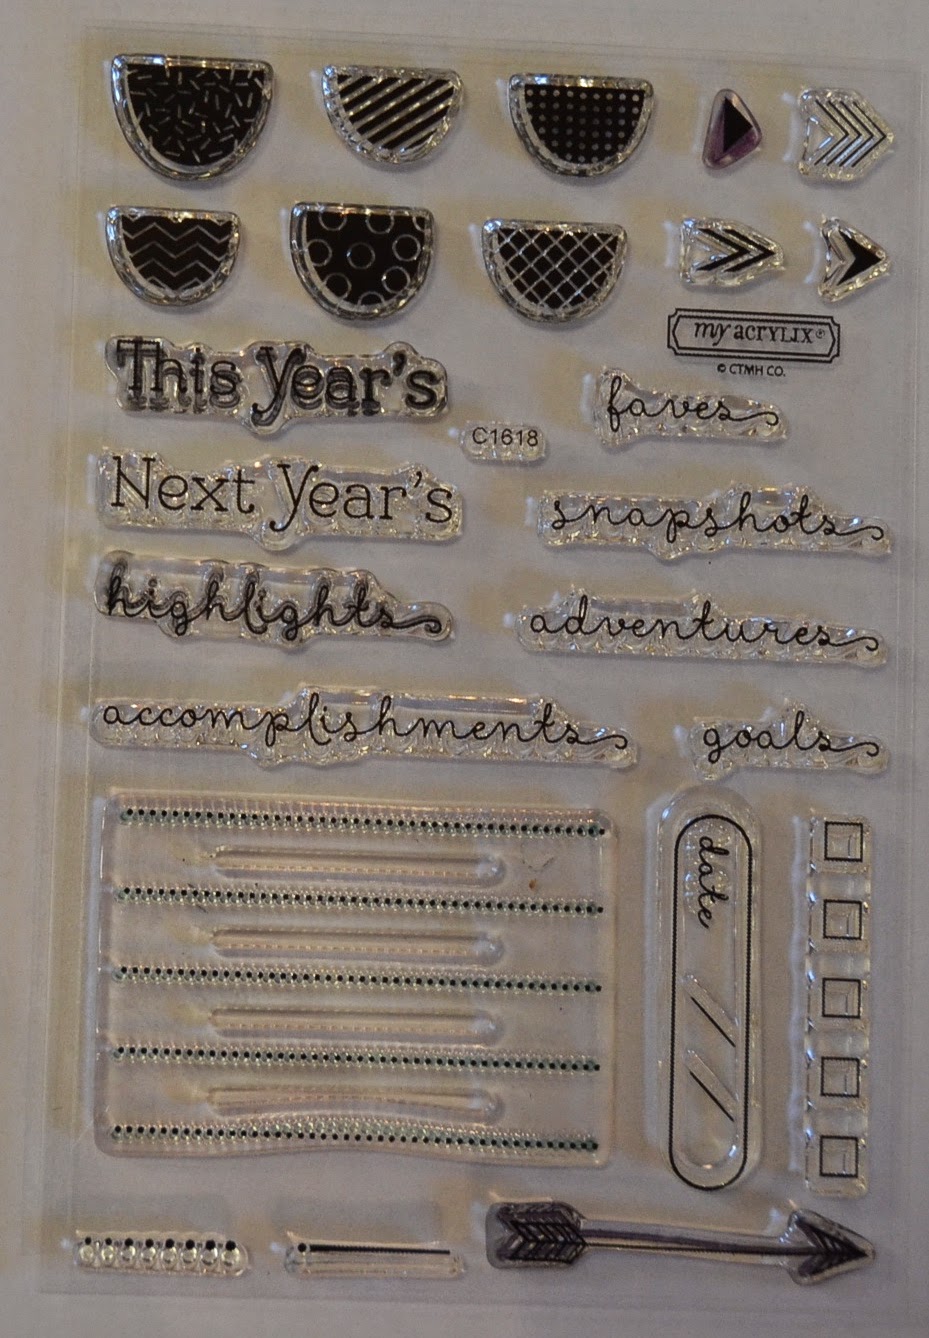 my ACRYLIX®
© CTMH CO.
This Year's
faves
C1618
Next Year's
snapshots
highlights
adventures
accomplishments
goals
date / /